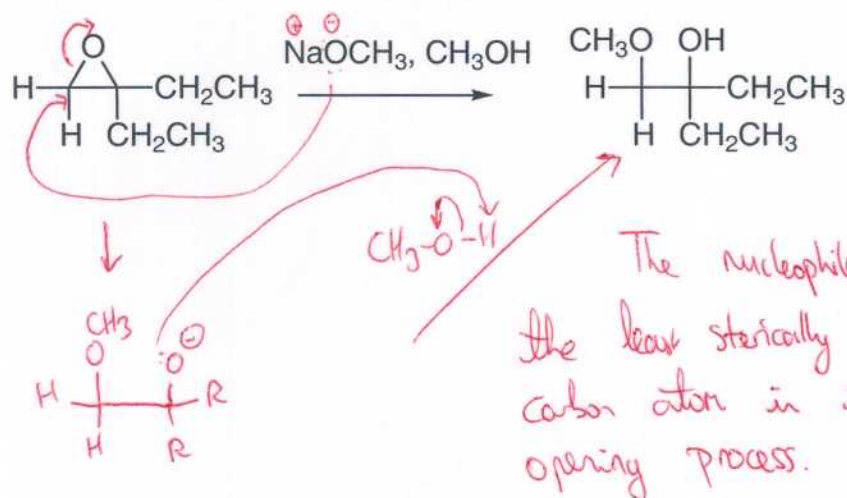 ⊕ ⊖
NaOCH₃, CH₃OH
O
H CH₂CH₃
H CH₂CH₃
CH₃O OH
H CH₂CH₃
H CH₂CH₃
CH₃-O-H
CH₃
O :O ⊖
H R
H R
The nucleophile
the least sterically
carbon atom in
opening process.